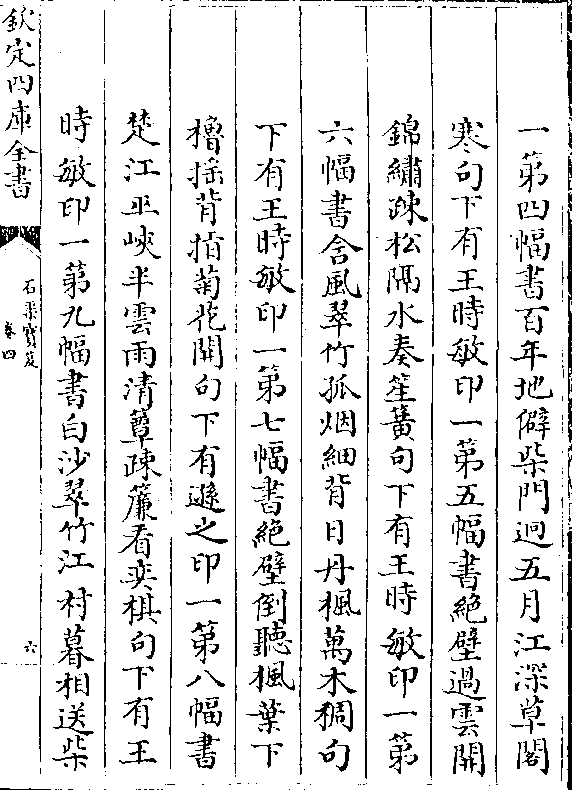 一第四幅書百年地僻柴門迥五月江深草閣
寒句下有王時敏印一第五幅書絶壁過雲開
錦繡疎松隔水奏笙簧句下有王時敏印一第
六幅書含風翠竹孤烟細背日丹楓萬木稠句
下有王時敏印一第七幅書絶壁倒聽楓葉下
櫓摇背指菊花開句下有遜之印一第八幅書
楚江巫峽半雲雨清簟疎簾看奕棋句下有王
時敏印一第九幅書白沙翠竹江村暮相送柴
欽定四庫全書
石渠寳笈
卷四
六